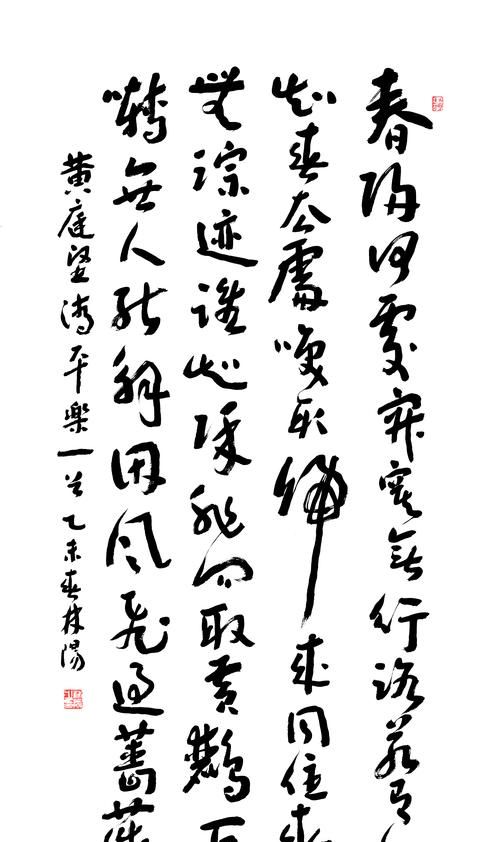 春歸何處寂寞無行路若有
知春去處喚取歸來同住春
無踪迹誰知除非問取黃鸝百
囀無人能解因風飛過薔薇
黃庭堅清平樂一首乙未春林陽